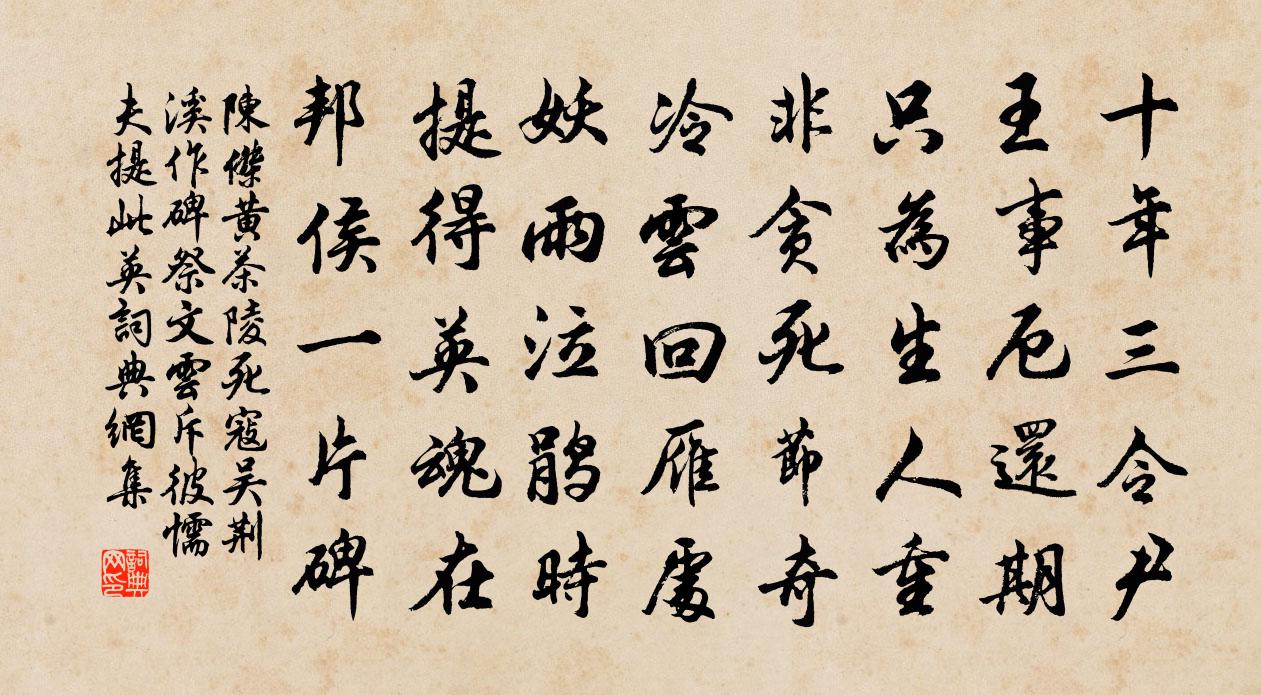 十年三令尹
王事厄還期
只為生人重
非貪死節奇
冷雲回雁處
妖雨泣鵑時
提得英魂在
邦侯一片碑
陳傑黃茶陵死寇吴荆
溪作碑祭文雲斥彼懦
夫提此英詞典網集
詞典網印